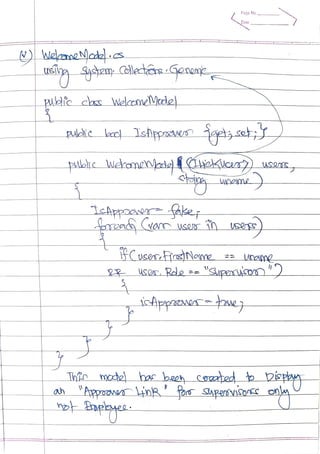 Page No.
Date
v) WelcomeModel.cs
using System.Collections.Generic
public class WelcomeModel
{
public bool IsApprover {get; set;}
public WelcomeModel (IList<User> users,
string uname)
{
IsApprover = false;
foreach (var user in users)
{
if (user.FirstName == uname
&& user.Role == "Supervisor")
{
isApprover = true;
}
}
}
}
This model has been created to Display
an "Approver Link" for supervisors only
not Employee.